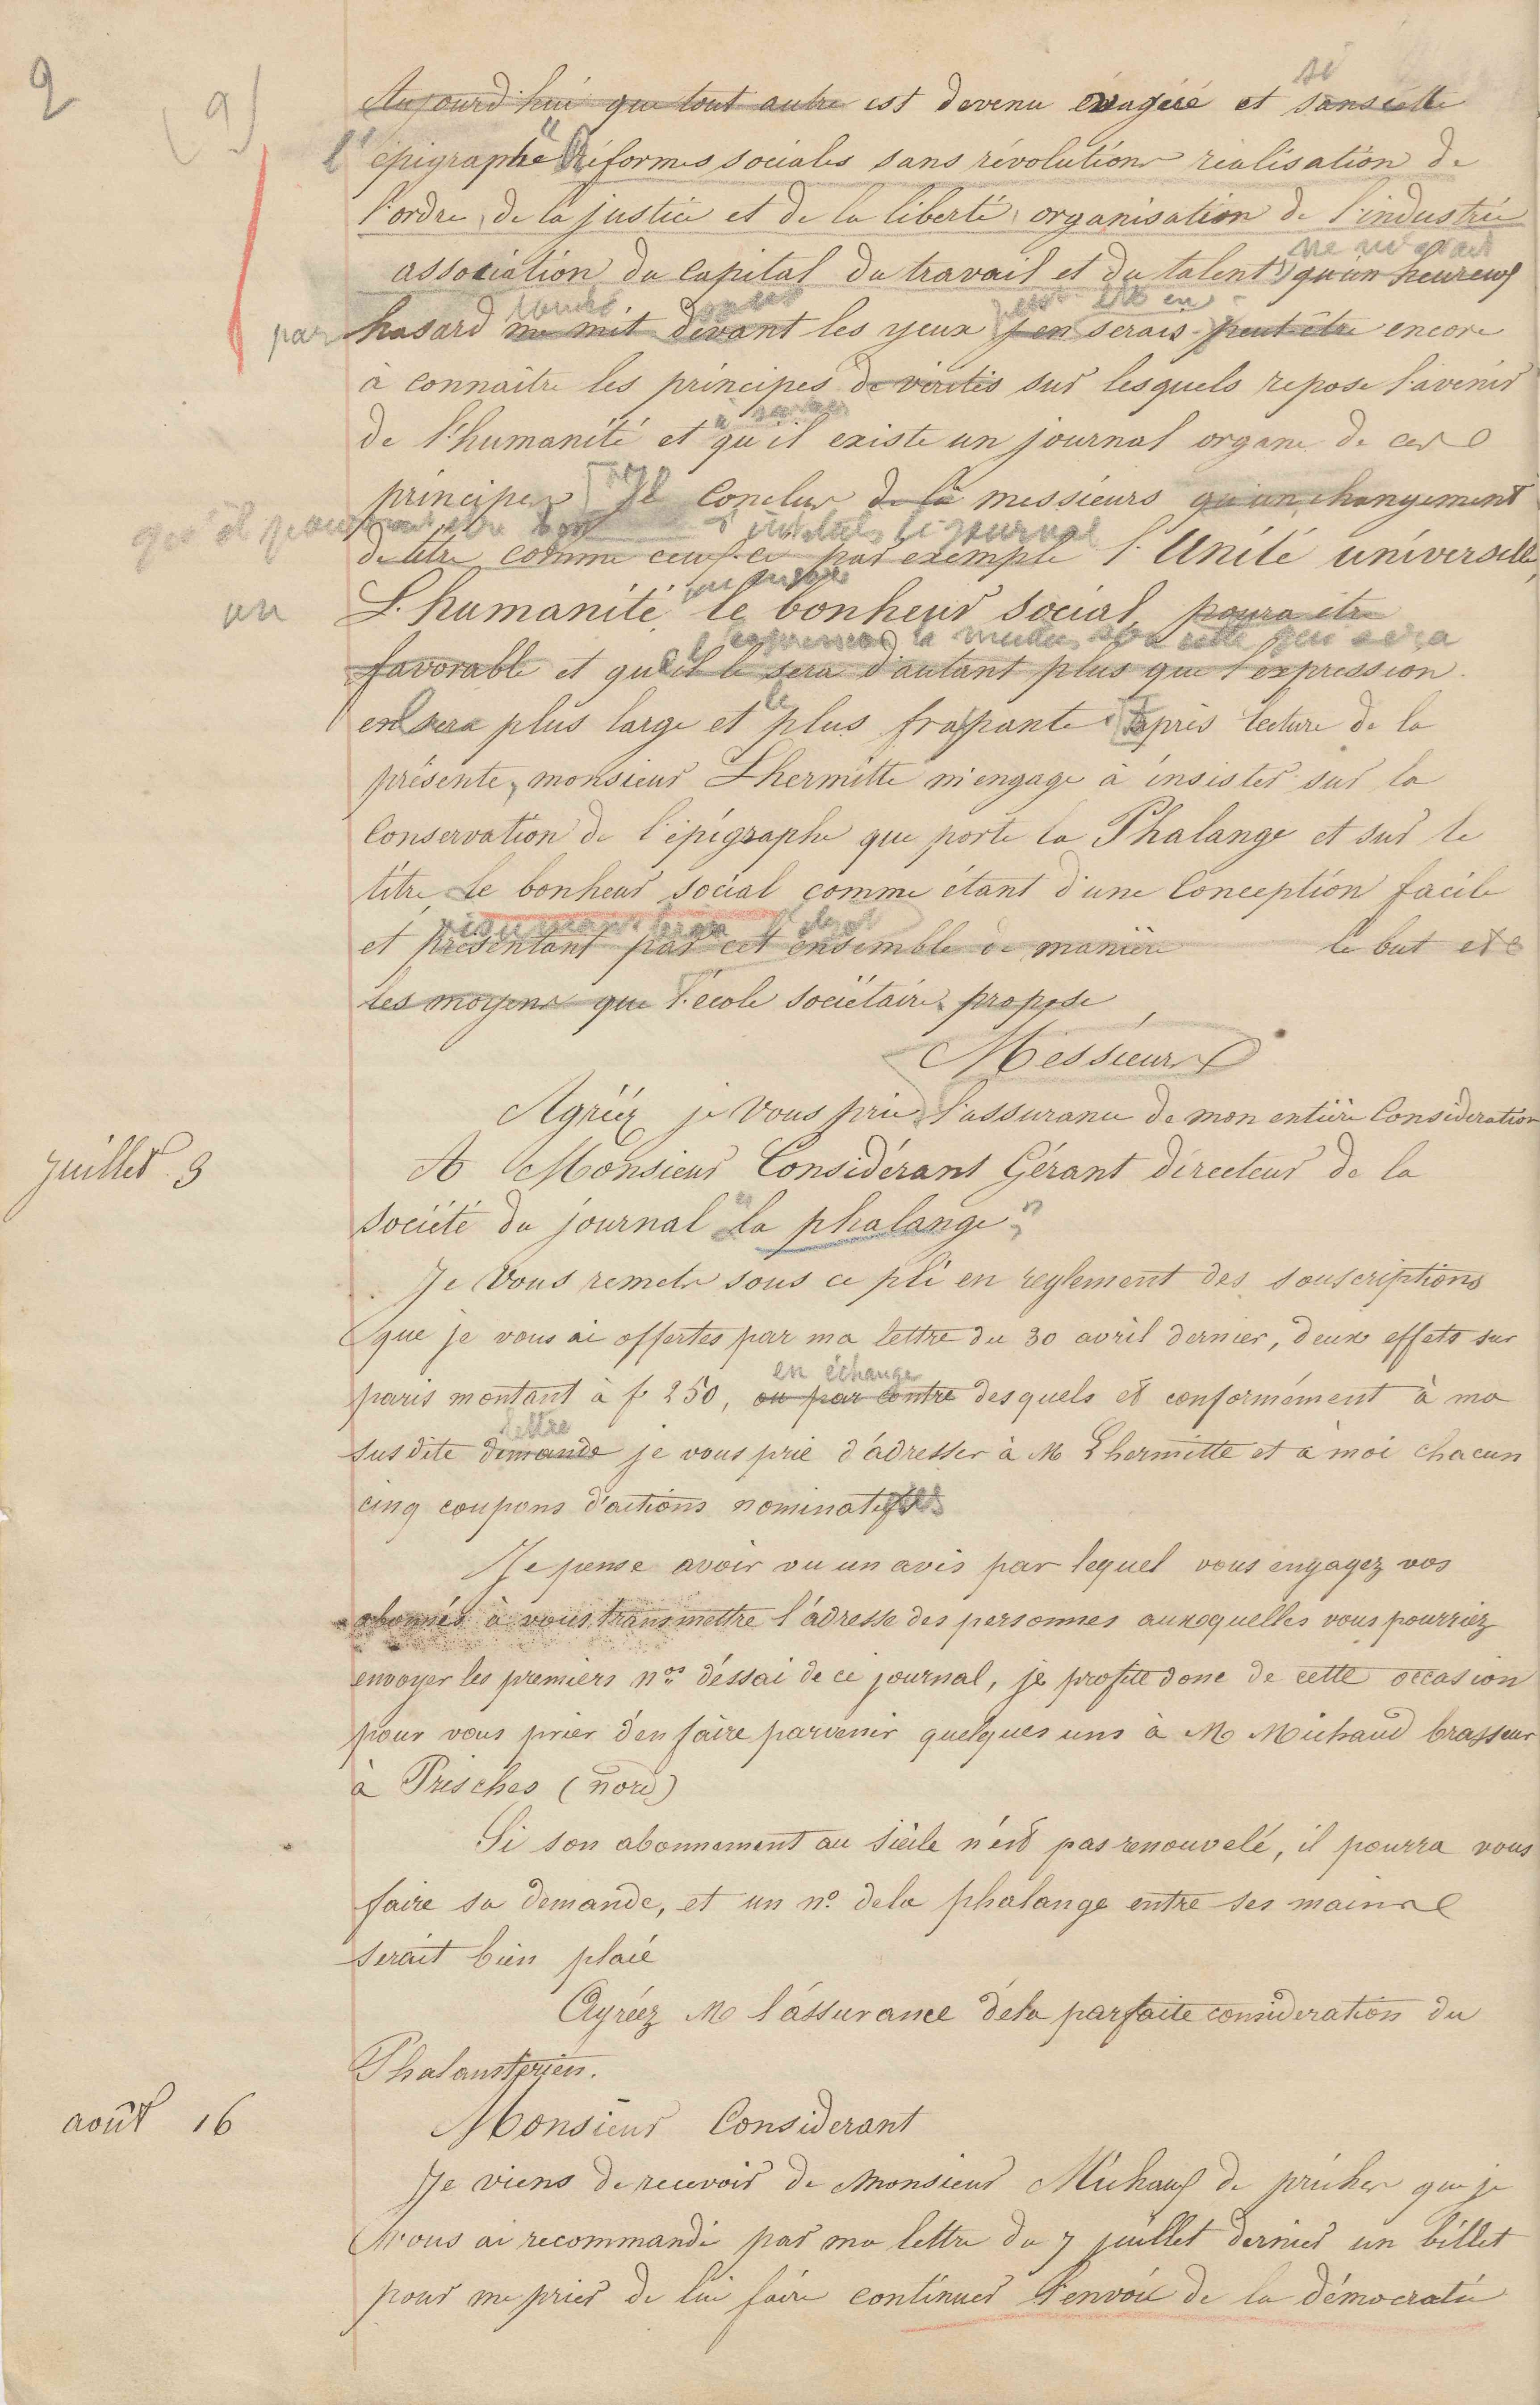 2
(9)
si
Aujourd'hui que tout autre est devenu exagéré et sans cette
l'épigraphe "Réformes sociales sans révolutions réalisation de
l'ordre, de la justice et de la liberté, organisation de l'industrie
association du Capital du travail et du talent" qu'un heureux
par hasard me mit devant les yeux j'en serais peut-être encore
à connaitre les principes de vérités sur lesquels repose l'avenir
de l'humanité et qu'il existe un journal organe de ces
principes Je Conclus de là messieurs qu'un changement
de titre comme ceux-ci par exemple l'Unité universelle,
ou L'humanité, le bonheur social, poura être
favorable et qu'il le sera d'autant plus que l'expression
en sera plus large et le plus frapante. Après lecture de la
présente, monsieur Lhermitte m'engage à insister sur la
Conservation de l'épigraphe que porte la Phalange et sur le
titre le bonheur social comme étant d'une Conception facile
et présentant par cet ensemble de manière le but et
les moyens que l'école sociétaire propose
Messieurs
Agréez je vous prie l'assurance de mon entière Considération
juillet 9
A Monsieur Considérant Gérant directeur de la
société du journal "la phalange"
Je vous remets sous ce pli en reglement des souscriptions
que je vous ai offertes par ma lettre du 30 avril dernier, deux effets sur
en échange
paris montant à f. 250, ou par contre desquels et conformément à ma
lettre
susdite demande je vous prie d'adresser à M Lhermitte et à moi chacun
cinq coupons d'actions nominatifs
Je pense avoir vu un avis par lequel vous engagez vos
abonnés à vous transmettre l'adresse des personnes auxquelles vous pourriez
envoyer les premiers nos d'éssai de ce journal, je profite donc de cette occasion
pour vous prier d'en faire parvenir quelques uns à M Michaud brasseur
à Prisches (nord)
Si son abonnement au siècle n'est pas renouvelé, il pourra vous
faire sa demande, et un no. dela phalange entre ses mains
serait bien placé
Agréez M l'assurance dela parfaite consideration du
Phalansterien.
août 16
Monsieur Considerant
Je viens de recevoir de Monsieur Michaux de prisches que je
vous ai recommandé par ma lettre du 7 juillet dernier un billet
pour me prier de lui faire continuer l'envoie de la démocratie